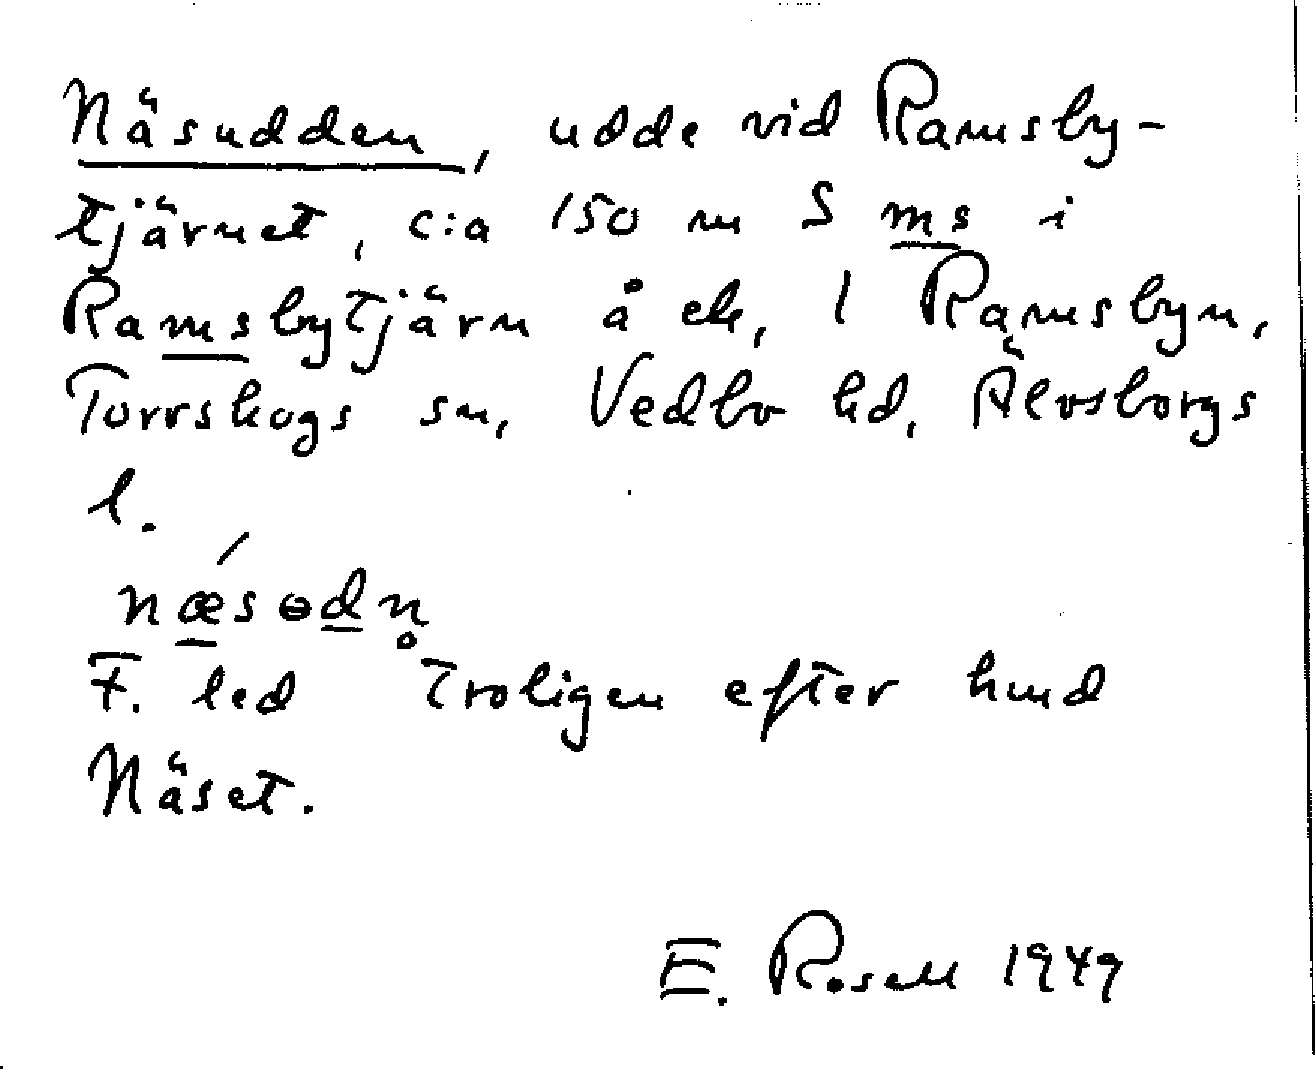 Näsudden, udde vid Ramsby-
tjärnet, c:a 150 m S ms i
Ramsbytjärn å ek, 1 Ramsbyn,
Torrskogs sn, Vedbo hd, Älvsborgs
l.
næ´sɵdn̥
F. led troligen efter hmd
Näset.
E. Rosell 1949